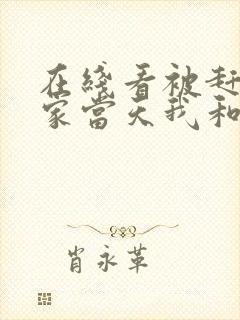 在綫看被赶
家當天我和
肖永革